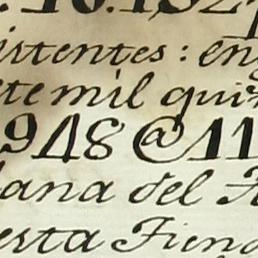 10.152
istentes: en
te mil qui
948 @ 11
ana del
erta Fien